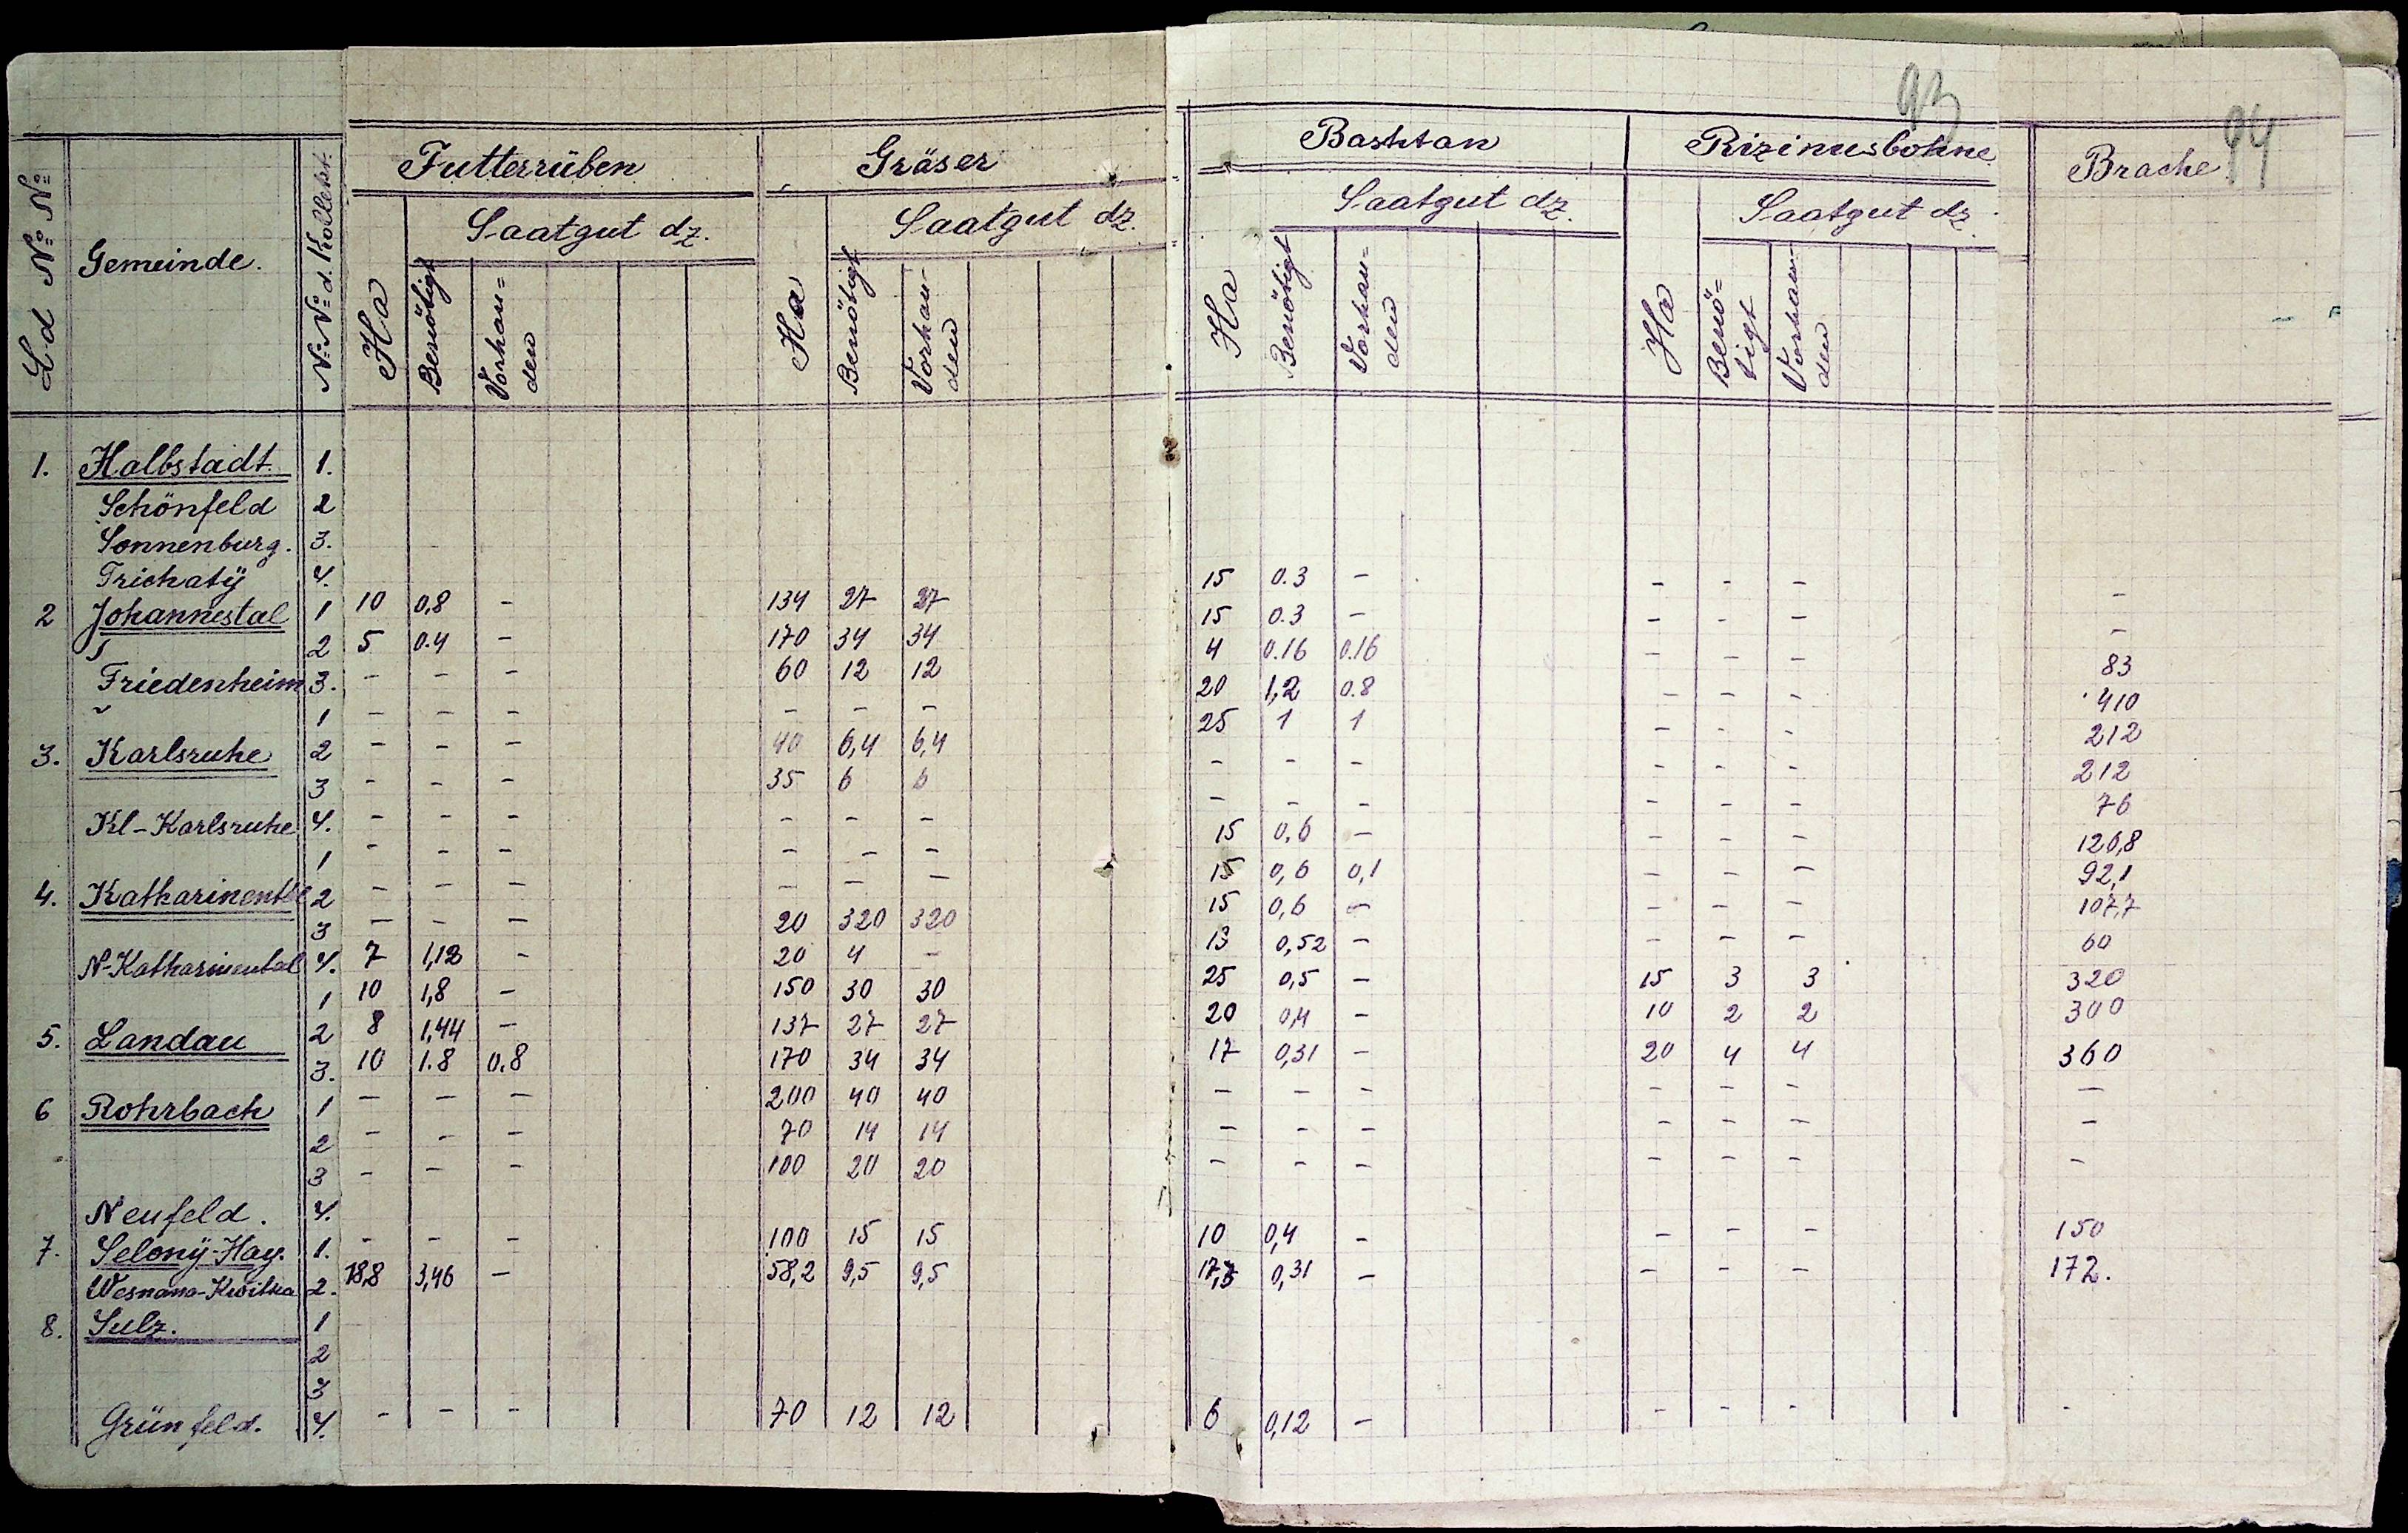 93
94
Ld №№ Gemeinde. №№ d. Kollekt. Futterrüben Gräser Bashtan Rizinusbohne Brache
Saatgut dz. Saatgut dz. Saatgut dz. Saatgut dz.
Ha Benötigt Vorhan= den Ha Benötigt Vorhan- den Ha Benötigt Vorhan= den Ha Benö= tigt Vorhan- den
1. Halbstadt. 1.
Schönfeld 2
Sonnenburg. 3.
Trichatÿ 4. 15 0.3 - - - - -
2 Johannestal 1 10 0,8 - 134 27 27 15 0.3 - - - - -
2 5 0.4 - 170 34 34 4 0.16 0.16 - - - 83
Friedenheim 3. - - - 60 12 12 20 1,2 0.8 - - - 410
1 - - - - - - 25 1 1 - - - 212
3. Karlsruhe 2 - - - 40 6,4 6,4 - - - - - - 212
3 - - - 35 6 6 - - - - - - 76
Kl-Karlsruhe 4. - - - - - - 15 0,6 - - - - 126,8
1 - - - - - - 15 0,6 0,1 - - - 92,1
4. Katharinental 2 - - - - - - 15 0,6 - - - - 107,7
3 - - - 20 320 320 13 0,52 - - - - 60
N-Katharinental 4. 7 1,12 - 20 4 - 25 0,5 - 15 3 3 320
1 10 1,8 - 150 30 30 20 0,4 - 10 2 2 300
5. Landau 2 8 1,44 - 137 27 27 17 0,31 - 20 4 4 360
3. 10 1.8 0.8 170 34 34 - - - - - - -
6 Rohrbach 1 - - - 200 40 40 - - - - - - -
2 - - - 70 14 14 - - - - - - -
3 - - - 100 20 20
Neufeld. 4.
7. Selonÿ-Hay. 1. - - - 100 15 15 10 0,4 - - - - 150
Wesnana-Kwitka 2. 18,8 3,46 - 58,2 9,5 9,5 17,3 0,31 - - - - 172.
8. Sulz. 1
2
3
Grünfeld. 4. - - - 70 12 12 6 0,12 - - - - -